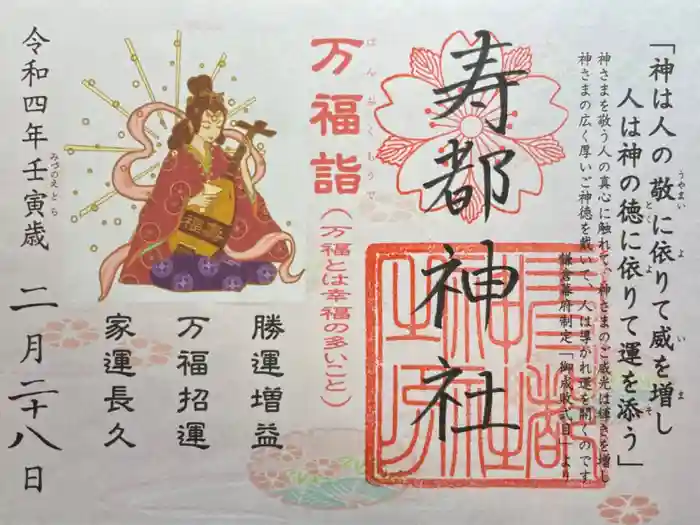 「神は人の敬に依りて威を増し
うやまい よ い ま
人は神の徳に依りて運を添う」
とく よ そ
神さまを敬う人の真心に触れて、神さまのご威光は輝きを増し
神さまの広く厚いご神徳を戴いて、人は導かれ運を開くのです
鎌倉幕府制定「御成敗式目」より
寿都神社
万福詣
ばんぷくもうで
(万福とは幸福の多いこと)
福寿
勝運増益
万福招運
家運長久
令和四年壬寅歳
みづのえとら
二月二十八日